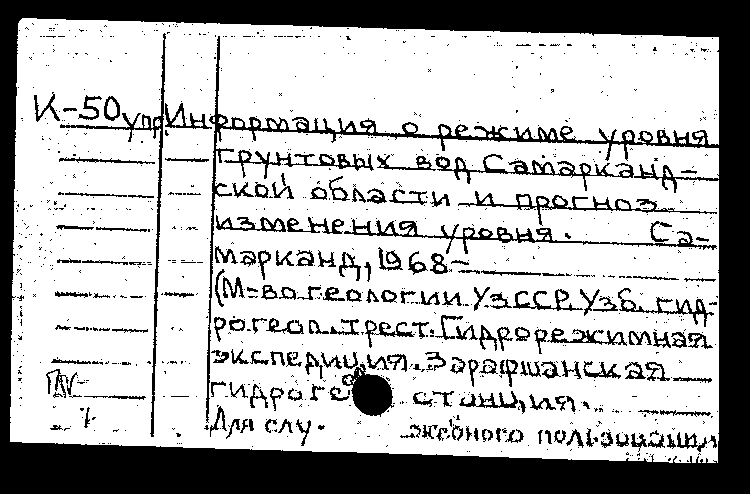 К-50упр Информация о режиме уровня
грунтовых вод Самарканд=
ской области и прогноз
изменения уровня. Са-
марканд, 1968-
(М-во геологии УзССР. Узб. гид-
рогеол. трест. Гидрорежимная
экспедиция. Зарафшанская
гидрогеол станция.
Для слу. жебного пользования